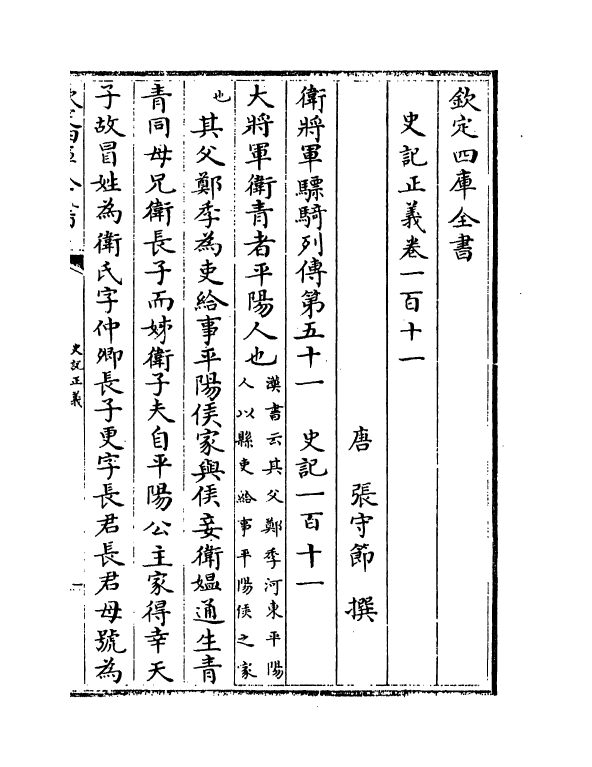 欽定四庫全書
史記正義卷一百十一
唐 張守節 撰
衛將軍驃騎列傳第五十一 史記一百十一
大將軍衛青者平陽人也漢書云其父鄭季河東平陽
人以縣吏給事平陽侯之家
也其父鄭季為吏給事平陽侯家與侯妾衛媼通生青
青同母兄衛長子而姊衛子夫自平陽公主家得幸天
子故冒姓為衛氏字仲卿長子更字長君長君母號為
史記正義
一